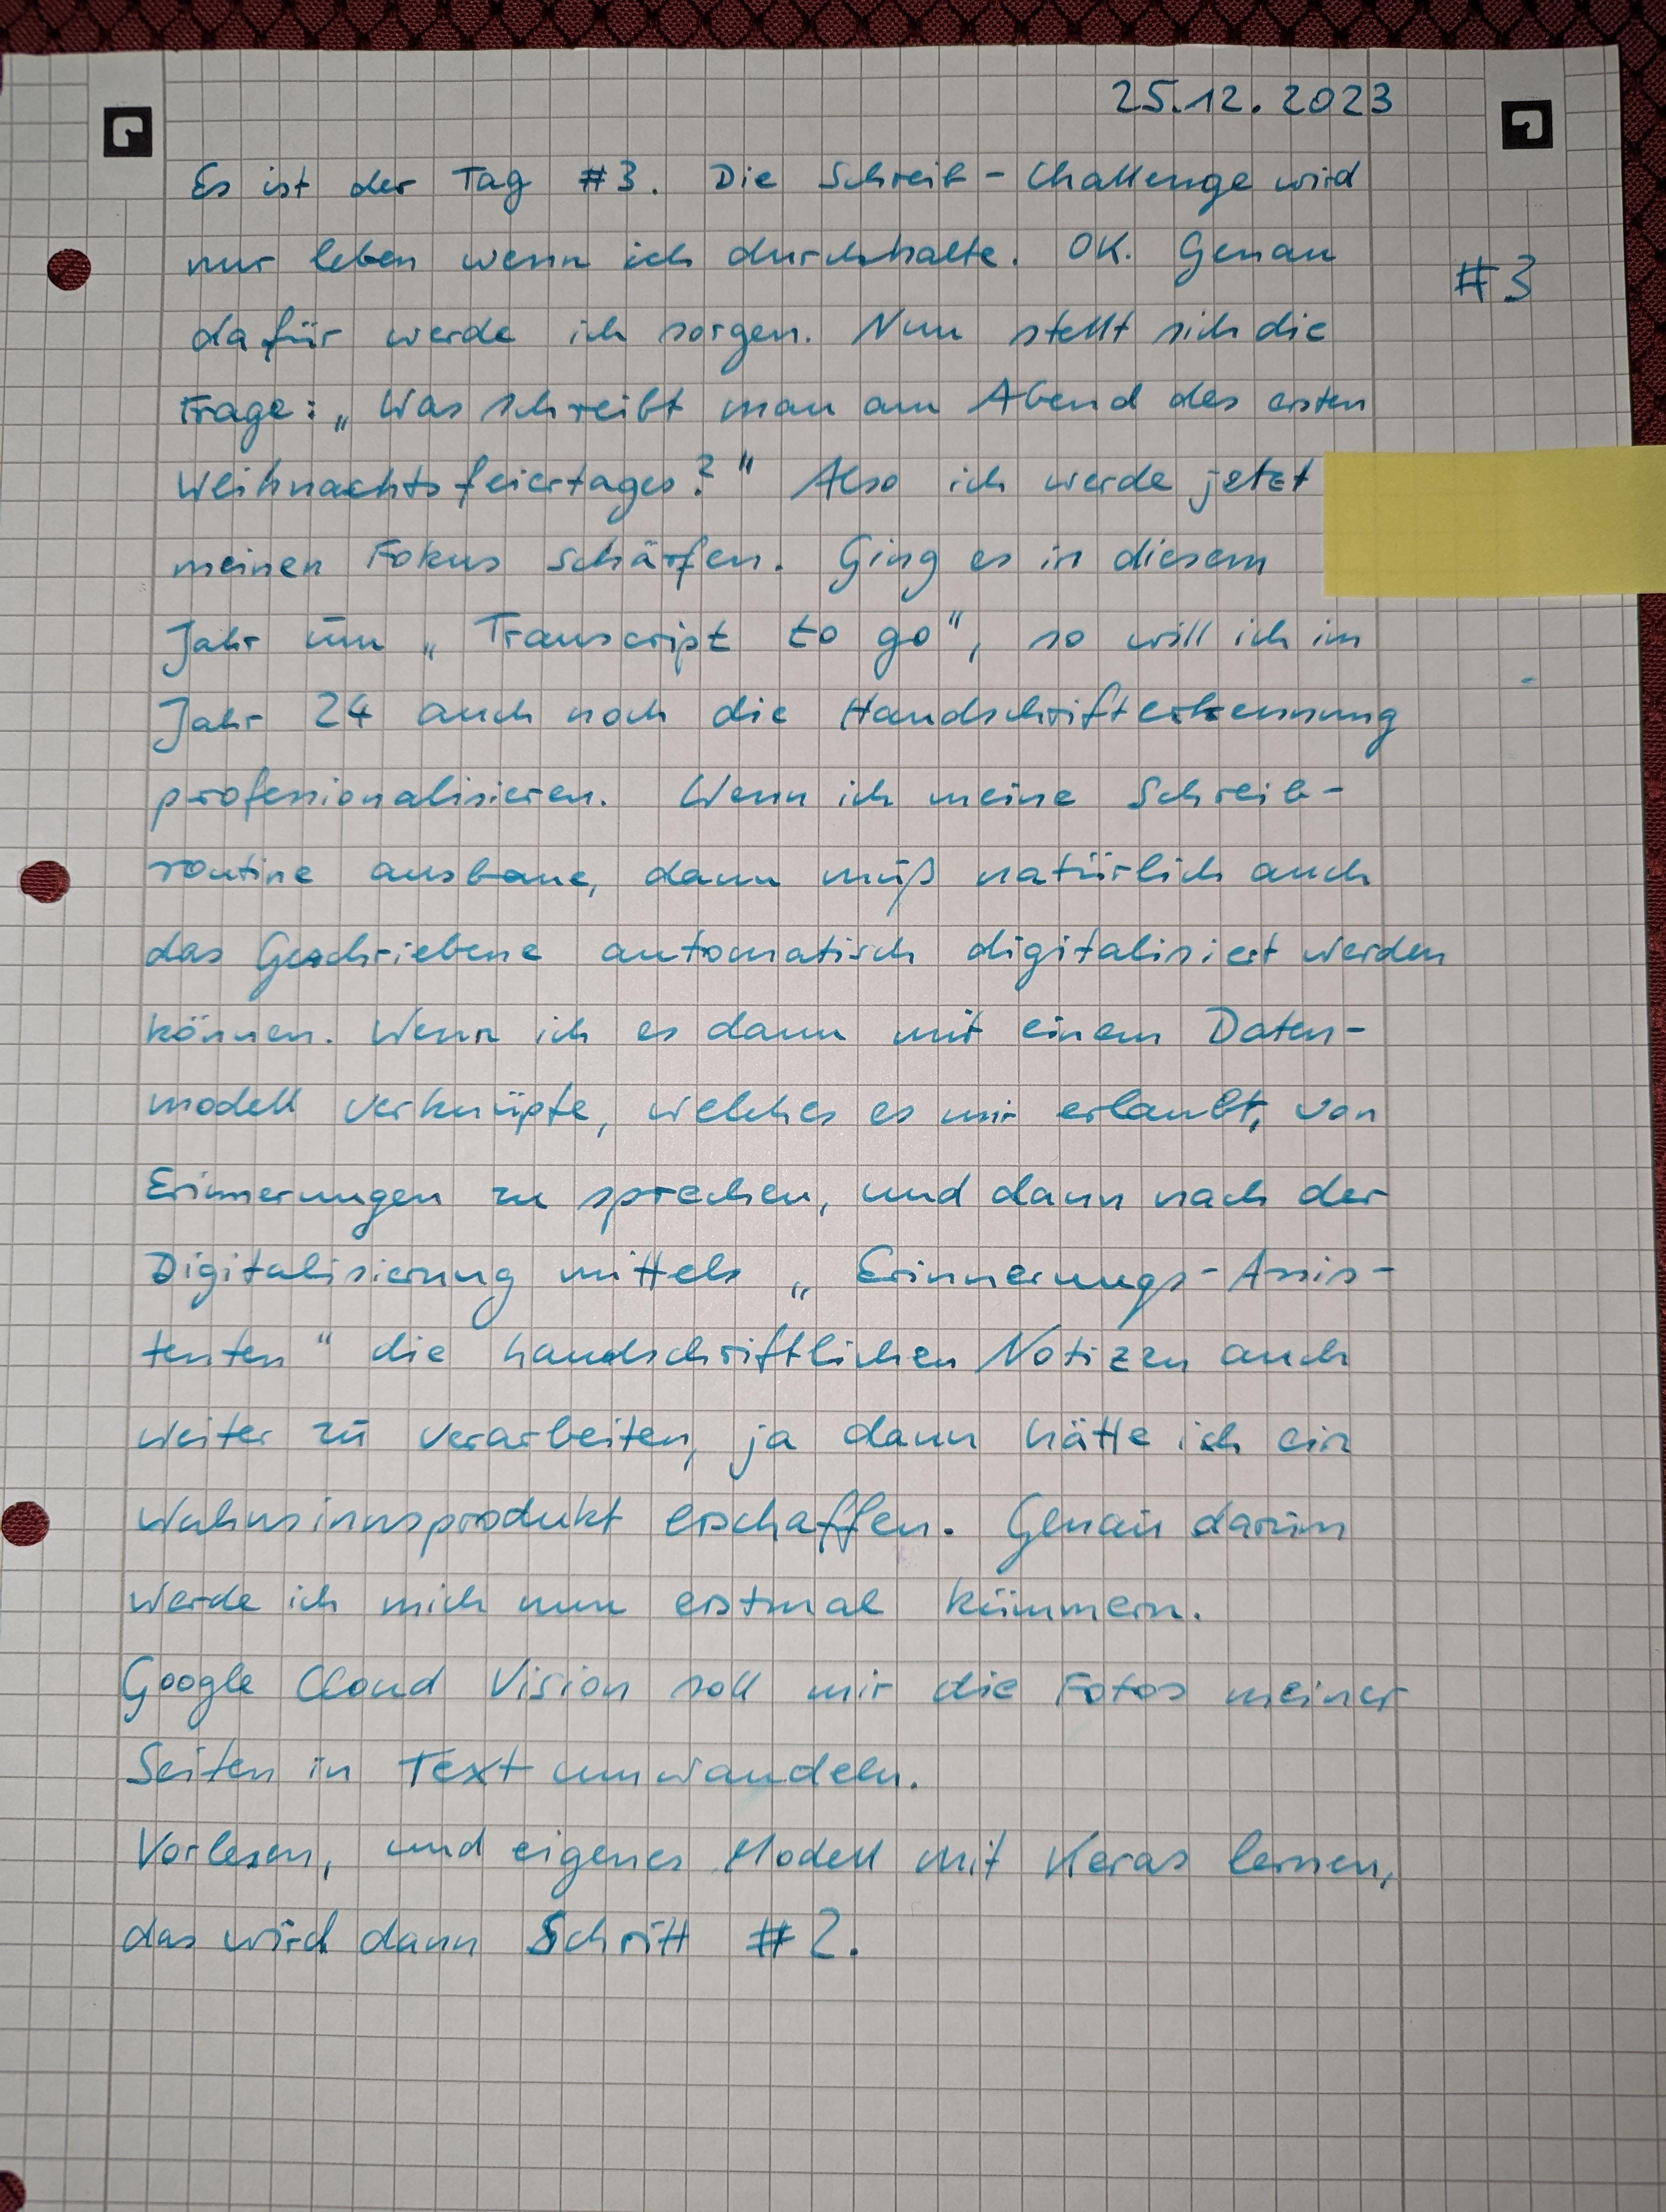 25.12.2023
Es ist der Tag #3. Die Schreib-Challenge wird
nur leben wenn ich durchhalte. OK. Genau
#3
dafür werde ich sorgen. Nun stellt sich die
Frage: „Was schreibt man am Abend des ersten
Weihnachtsfeiertages?" Also ich werde jetzt
meinen Fokus schärfen. Ging es in diesem
Jahr um „Transcript to go", so will ich im
Jahr 24 auch noch die Handschrifterkennung
professionalisieren. Wenn ich meine Schreib-
routine ausbaue, dann muß natürlich auch
das Geschriebene automatisch digitalisiert werden
können. Wenn ich es dann mit einem Daten-
modell verknüpfe, welches es mir erlaubt, von
Erinnerungen zu sprechen, und dann nach der
Digitalisierung mittels „Erinnerungs-Assis-
tenten" die handschriftlichen Notizen auch
weiter zu verarbeiten, ja dann hätte ich ein
Wahnsinnsprodukt erschaffen. Genau darum
werde ich mich nun erstmal kümmern.
Google Cloud Vision soll mir die Fotos meiner
Seiten in Text umwandeln.
Vorlesen, und eigenes Modell mit Keras lernen,
das wird dann Schritt #2.